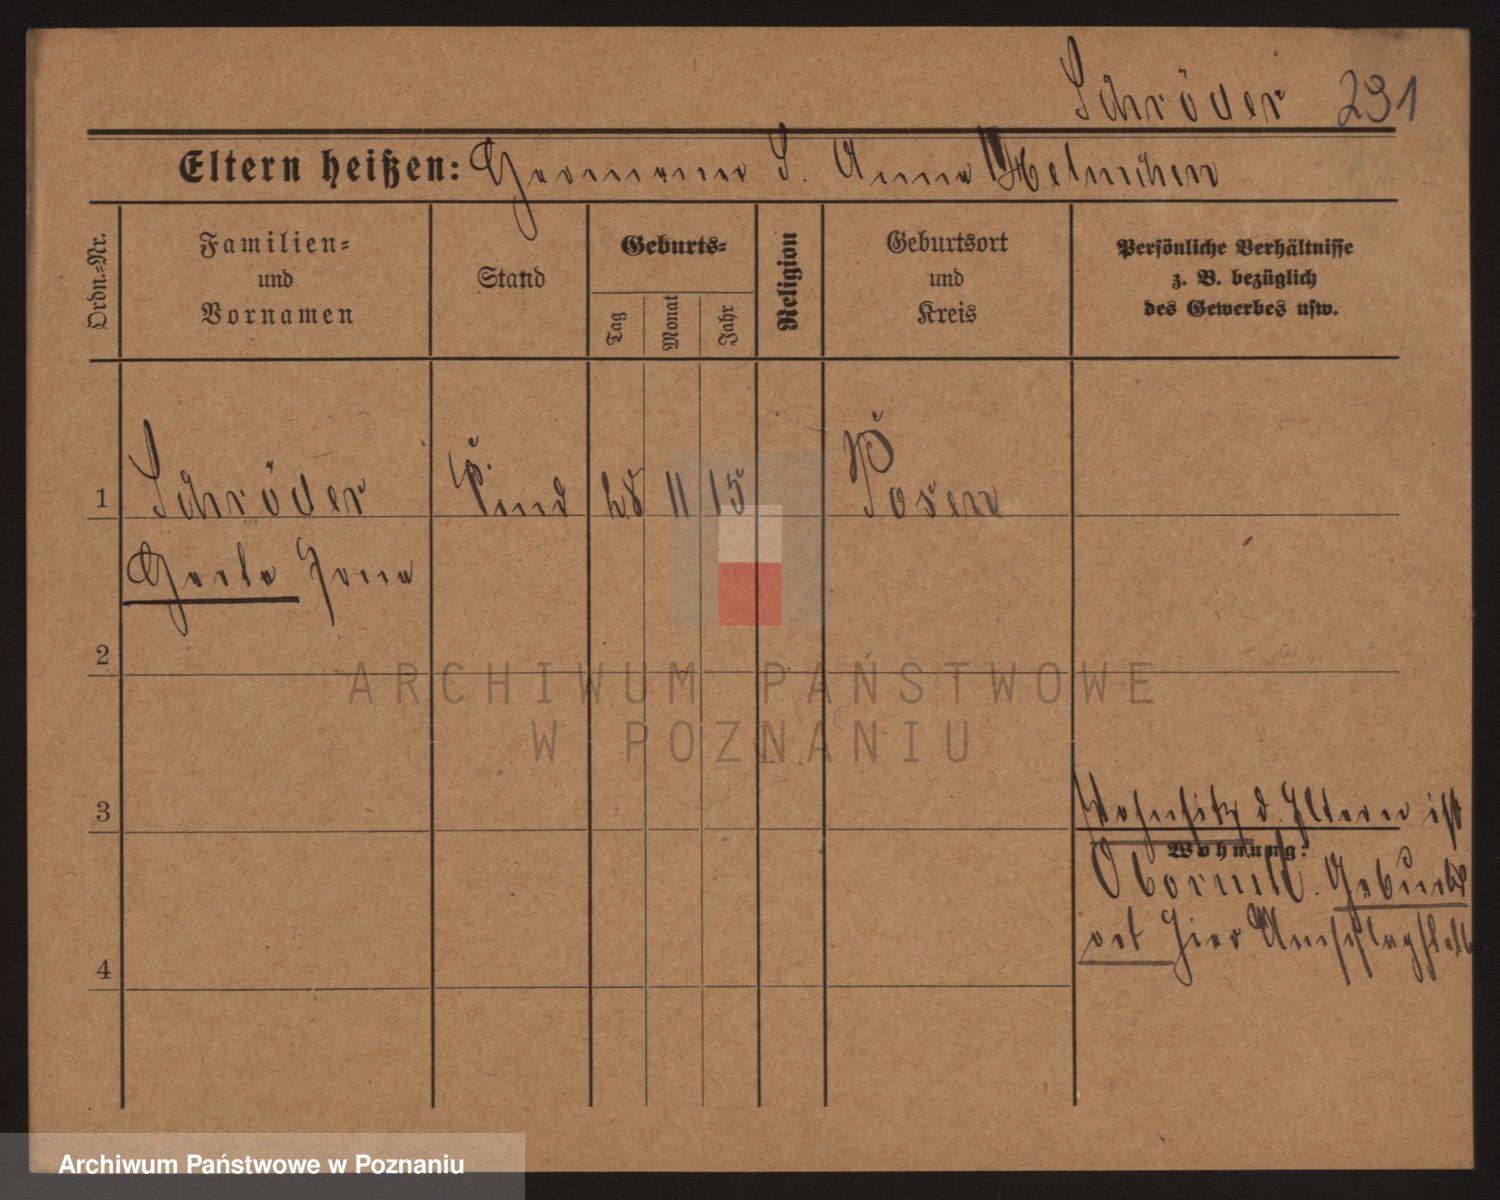 Schröder 291
Eltern heißen: Hermann S. Anna Helmchen
Ordn.=Nr.
Familien=
und
Vornamen
Stand
Geburts=
Tag
Monat
Jahr
Religion
Geburtsort
und
Kreis
Persönliche Verhältnisse
z. B. bezüglich
des Gewerbes usw.
1 Schröder Kind 28 11 15 Posen
Gerda
2
3
Wohnsitz d. Eltern ist
Wohnung:
Obornik. Geburts
ort hier
4
ARCHIWUM PAŃSTWOWE
W POZNANIU
Archiwum Państwowe w Poznaniu